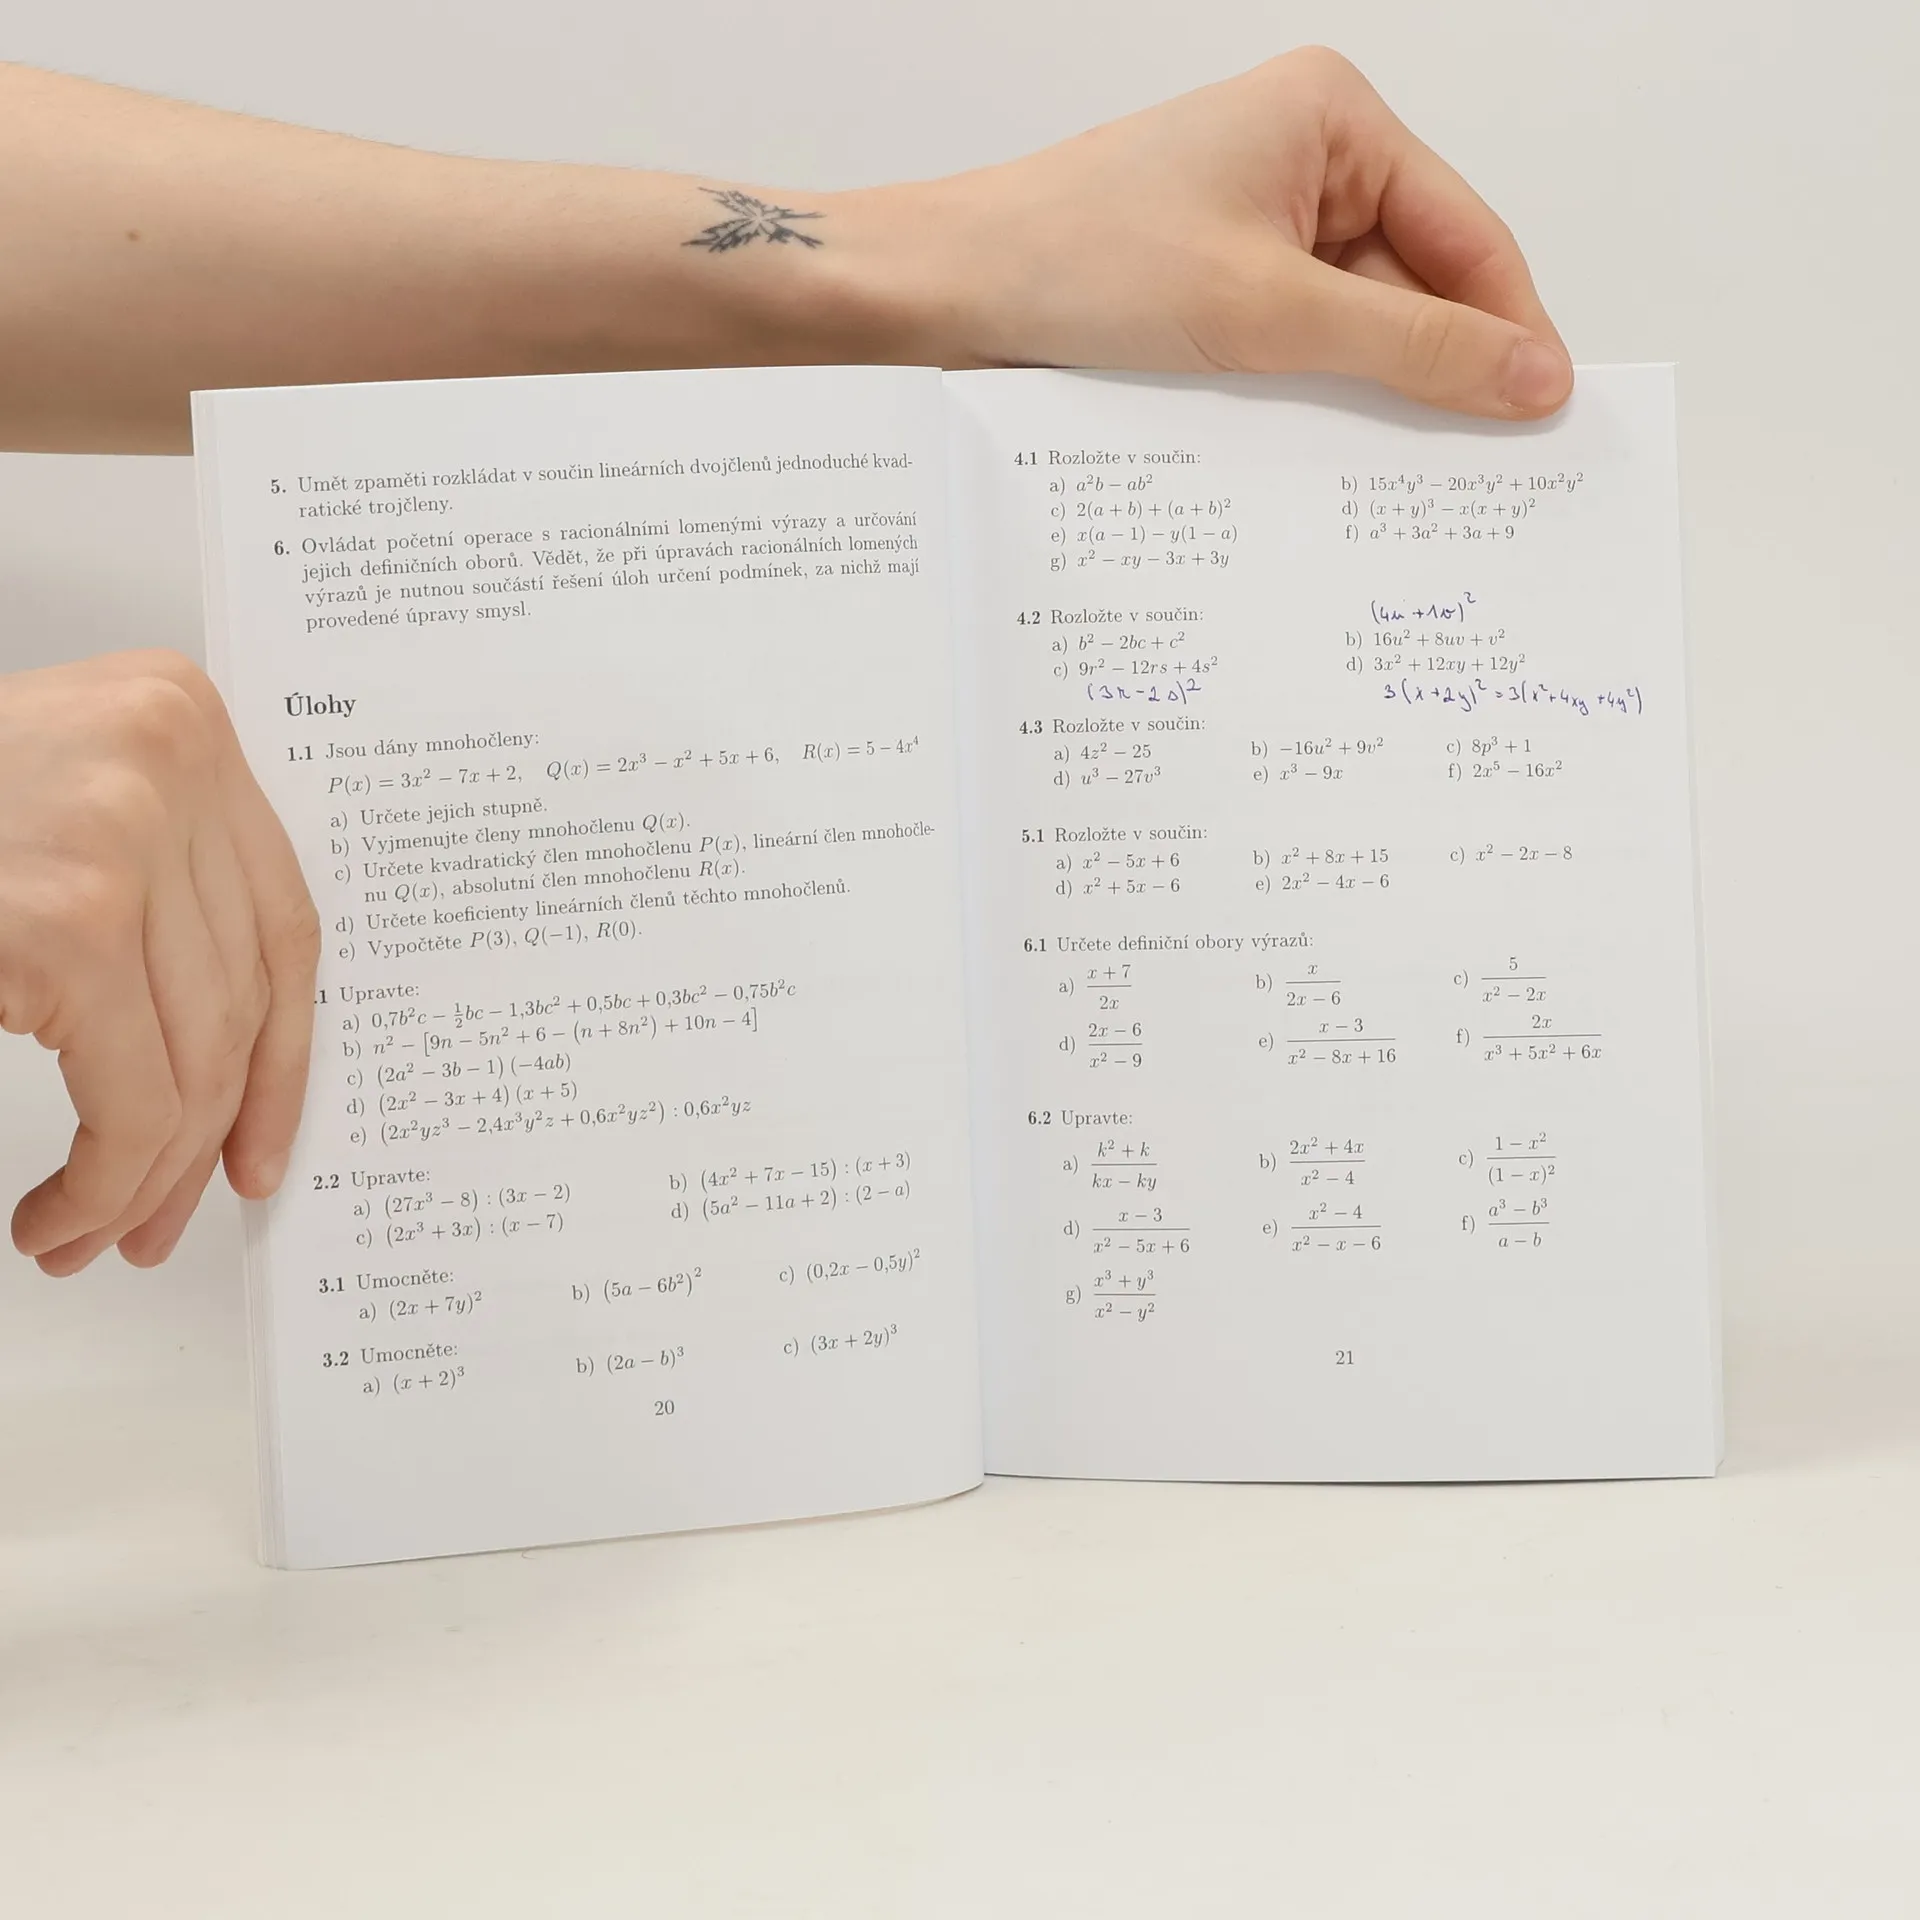 5. Umět zpaměti rozkládat v součin lineárních dvojčlenů jednoduché kvad-
ratické trojčleny.
6. Ovládat početní operace s racionálními lomenými výrazy a určování
jejich definičních oborů. Vědět, že při úpravách racionálních lomených
výrazů je nutnou součástí řešení úloh určení podmínek, za nichž mají
provedené úpravy smysl.
Úlohy
1.1 Jsou dány mnohočleny:
P(x) = 3x² − 7x + 2, Q(x) = 2x³ − x² + 5x + 6, R(x) = 5 − 4x⁴
a) Určete jejich stupně.
b) Vyjmenujte členy mnohočlenu Q(x).
c) Určete kvadratický člen mnohočlenu P(x), lineární člen mnohočle-
nu Q(x), absolutní člen mnohočlenu R(x).
d) Určete koeficienty lineárních členů těchto mnohočlenů.
e) Vypočtěte P(3), Q(−1), R(0).
.1 Upravte:
a) 0,7b²c − ½bc − 1,3bc² + 0,5bc + 0,3bc² − 0,75b²c
b) n² − [9n − 5n² + 6 − (n + 8n²) + 10n − 4]
c) (2a² − 3b − 1) (−4ab)
d) (2x² − 3x + 4) (x + 5)
e) (2x²yz³ − 2,4x³y²z + 0,6x²yz²) : 0,6x²yz
2.2 Upravte:
a) (27x³ − 8) : (3x − 2) b) (4x² + 7x − 15) : (x + 3)
c) (2x³ + 3x) : (x − 7) d) (5a² − 11a + 2) : (2 − a)
3.1 Umocněte:
a) (2x + 7y)² b) (5a − 6b²)² c) (0,2x − 0,5y)²
3.2 Umocněte:
a) (x + 2)³ b) (2a − b)³ c) (3x + 2y)³
20
4.1 Rozložte v součin:
a) a²b − ab² b) 15x⁴y³ − 20x³y² + 10x²y²
c) 2(a + b) + (a + b)² d) (x + y)³ − x(x + y)²
e) x(a − 1) − y(1 − a) f) a³ + 3a² + 3a + 9
g) x² − xy − 3x + 3y
(4u + 1v)²
4.2 Rozložte v součin:
a) b² − 2bc + c² b) 16u² + 8uv + v²
c) 9r² − 12rs + 4s² d) 3x² + 12xy + 12y²
(3r − 2s)² 3(x + 2y)² = 3(x² + 4xy + 4y²)
4.3 Rozložte v součin:
a) 4z² − 25 b) −16u² + 9v² c) 8p³ + 1
d) u³ − 27v³ e) x³ − 9x f) 2x⁵ − 16x²
5.1 Rozložte v součin:
a) x² − 5x + 6 b) x² + 8x + 15 c) x² − 2x − 8
d) x² + 5x − 6 e) 2x² − 4x − 6
6.1 Určete definiční obory výrazů:
a) (x + 7)/(2x) b) x/(2x − 6) c) 5/(x² − 2x)
d) (2x − 6)/(x² − 9) e) (x − 3)/(x² − 8x + 16) f) 2x/(x³ + 5x² + 6x)
6.2 Upravte:
a) (k² + k)/(kx − ky) b) (2x² + 4x)/(x² − 4) c) (1 − x²)/(1 − x)²
d) (x − 3)/(x² − 5x + 6) e) (x² − 4)/(x² − x − 6) f) (a³ − b³)/(a − b)
g) (x³ + y³)/(x² − y²)
21